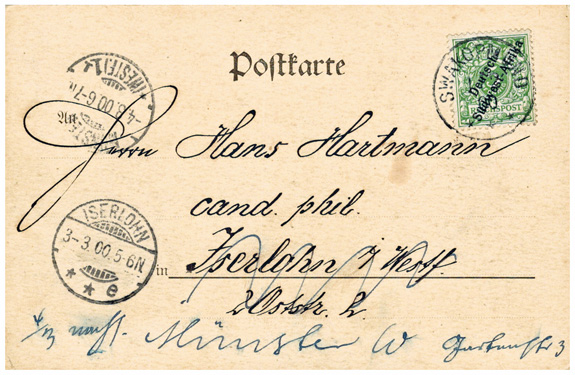 Postkarte
SWAKOP
Deutsch-
Südwest-Afrika
REICHSPOST
(WESTF.) 1
4.3.00.6-7
An
Herrn Hans Hartmann
cand. phil.
ISERLOHN
3-3.00.5-6N
* * e
in Iserlohn i/Westf.
Oststr. 2
nach Münster W Gartenstr 3